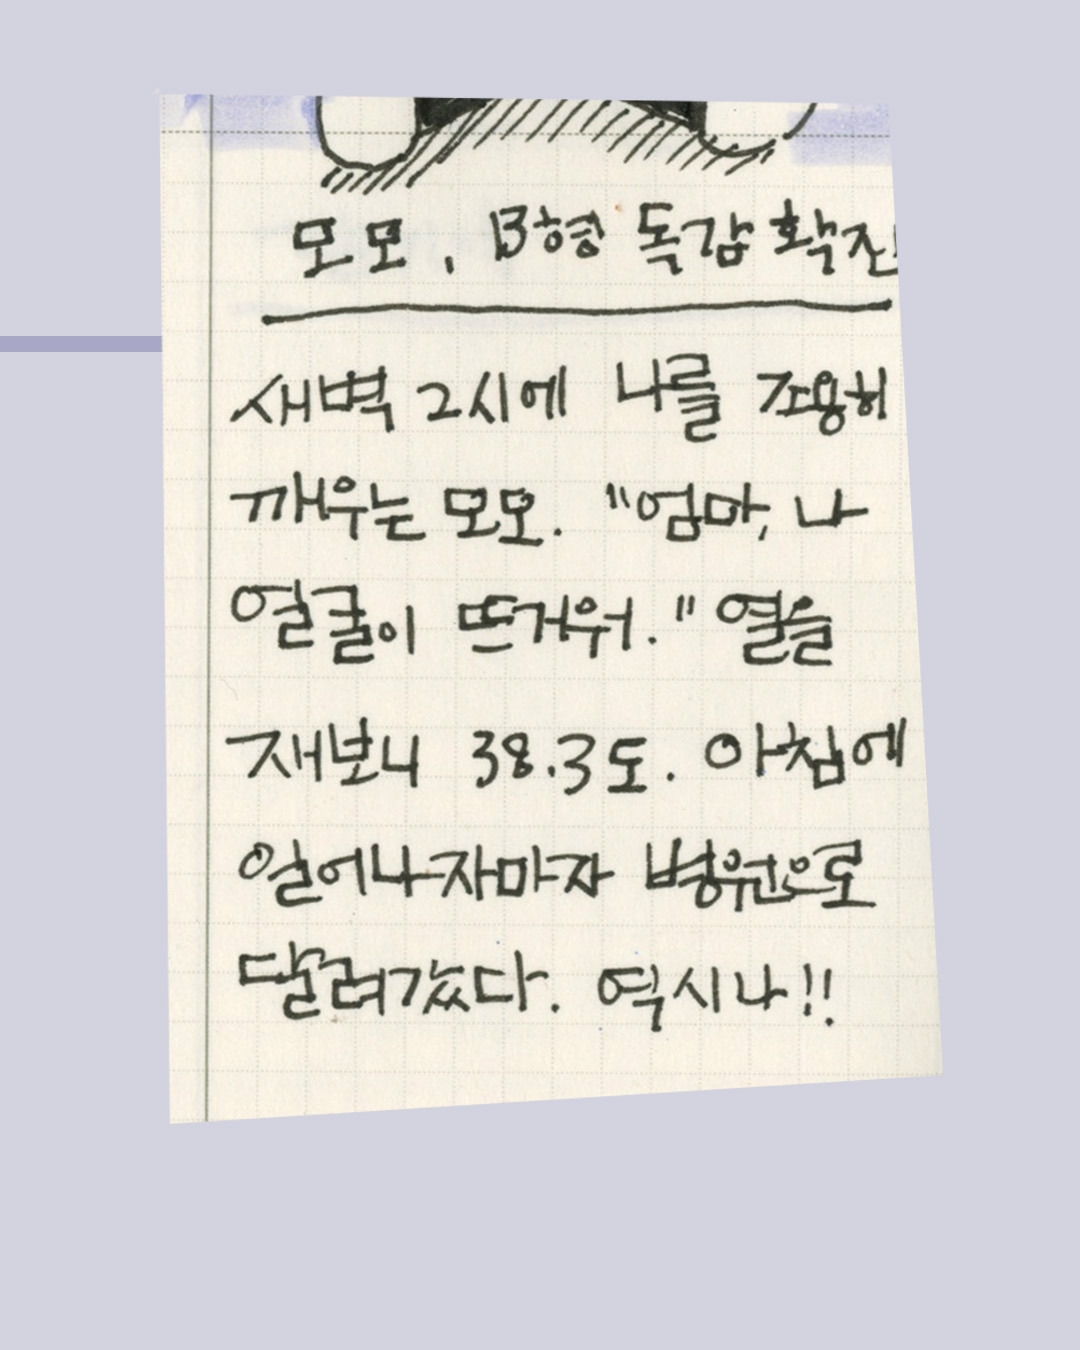 모모, B형 독감 확진
새벽 2시에 나를 조용히
깨우는 모모. "엄마, 나
얼굴이 뜨거워." 열을
재보니 38.3도. 아침에
일어나자마자 병원으로
달려갔다. 역시나!!